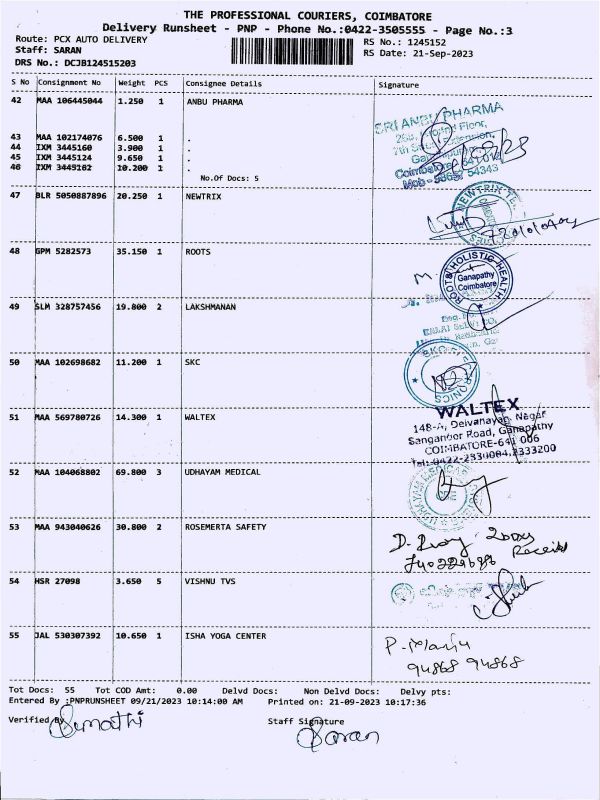 THE PROFESSIONAL COURIERS, COIMBATORE
Delivery Runsheet - PNP - Phone No.:0422-3505555 - Page No.:3
Route: PCX AUTO DELIVERY
Staff: SARAN
DRS No.: DCJB124515203
RS No.: 1245152
RS Date: 21-Sep-2023
S No Consignment No Weight PCS Consignee Details Signature
42 MAA 106445044 1.250 1 ANBU PHARMA
SRI ANBU PHARMA
43 MAA 102174076 6.500 1 .
44 IXM 3445160 3.900 1 .
45 IXM 3445124 9.650 1 .
46 IXM 3449102 10.200 1 .
No.Of Docs: 5
Coimbatore
47 BLR 5050887896 20.250 1 NEWTRIX
NEWTRIX
48 GPM 5282573 35.150 1 ROOTS
ROOTS HOLISTIC HEALTH
Ganapathy
Coimbatore
49 SLM 328757456 19.800 2 LAKSHMANAN
50 MAA 102698682 11.200 1 SKC
SKC ELECTRONICS
51 MAA 569780726 14.300 1 WALTEX
WALTEX
148-A, Deivanayan Nagar
Sanganoor Road, Ganapathy
COIMBATORE-641 006
52 MAA 104068802 69.800 3 UDHAYAM MEDICAL
UDHAYAM MEDICAL
53 MAA 943040626 30.800 2 ROSEMERTA SAFETY
54 HSR 27098 3.650 5 VISHNU TVS
55 JAL 530307392 10.650 1 ISHA YOGA CENTER
94868 94868
Tot Docs: 55 Tot COD Amt: 0.00 Delvd Docs: Non Delvd Docs: Delvy pts:
Entered By :PNPRUNSHEET 09/21/2023 10:14:00 AM Printed on: 21-09-2023 10:17:36
Verified By Staff Signature
Saran